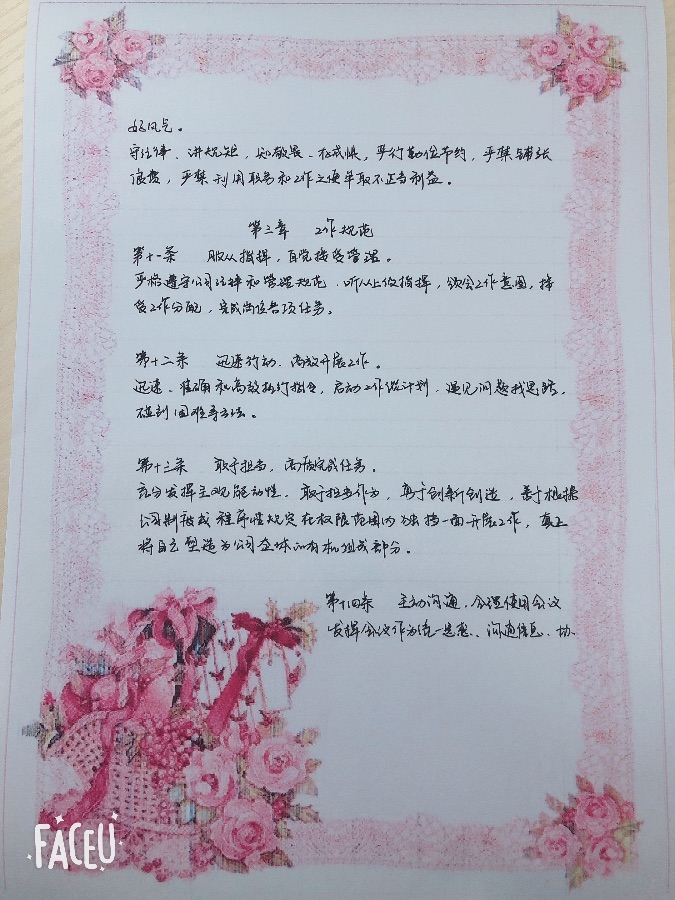 好风气。
守法律、讲规矩,知敬畏、存戒惧,厉行勤俭节约,严禁铺张
浪费,严禁利用职务和工作之便牟取不正当利益。
第三章 工作规范
第十一条 服从指挥,自觉接受管理。
严格遵守公司法律和管理规范,听从上级指挥,领会工作意图,接
受工作分配,完成岗位各项任务。
第十二条 迅速行动、高效开展工作。
迅速、准确和高效执行指令,启动工作做计划,遇见问题找思路,
碰到困难寻方法。
第十三条 敢于担当,高质完成任务。
充分发挥主观能动性,敢于担当作为,勇于创新创造,善于根据
公司制度或程序性规定在权限范围内独挡一面开展工作,真正
将自己塑造为公司整体的有机组成部分。
第十四条 主动沟通,合理使用会议
发挥会议作为统一思想、沟通信息、协
FACEU